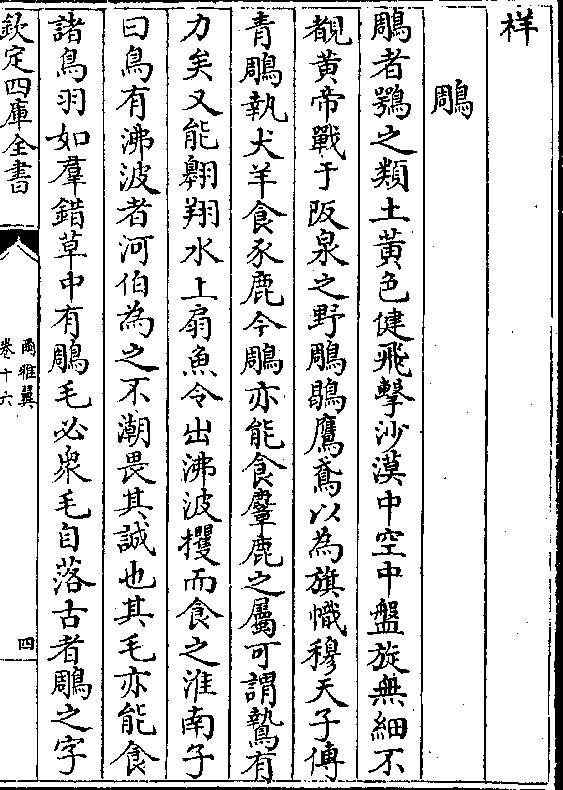 样
鵰
鵰者鶚之類土黃色健飛擊沙漠中空中盤旋無細不
覩黃帝戰于阪泉之野鵰鶡鷹鳶以為旗幟穆天子傳
青鵰執犬羊食豕鹿今鵰亦能食麞鹿之屬可謂鷙有
力矣又能翺翔水上扇魚令出沸波攫而食之淮南子
曰鳥有沸波者河伯為之不潮畏其誠也其毛亦能食
諸鳥羽如羣錯草中有鵰毛必衆毛自落古者鵰之字
欽定四庫全書
爾雅翼
卷十六
四